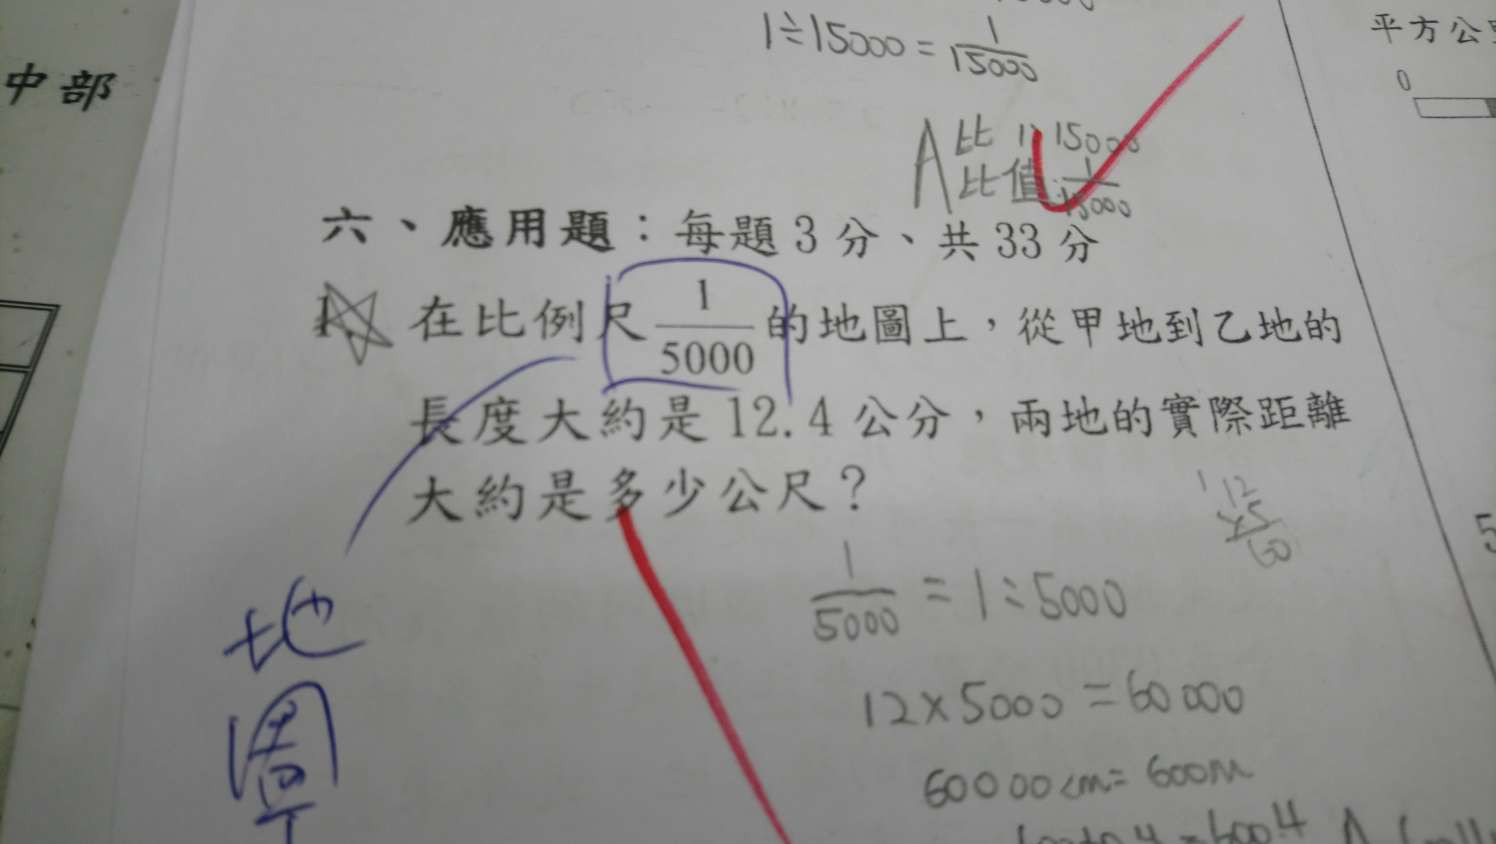 中部
1÷15000=1/15000
平方公
0
A 比 1:15000
比值:1/15000
六、應用題：每題3分、共33分
1. 在比例尺1/5000的地圖上，從甲地到乙地的
長度大約是12.4公分，兩地的實際距離
大約是多少公尺？
12
×5
60
1/5000=1÷5000
12×5000=60000
60000cm=600m
地
圖